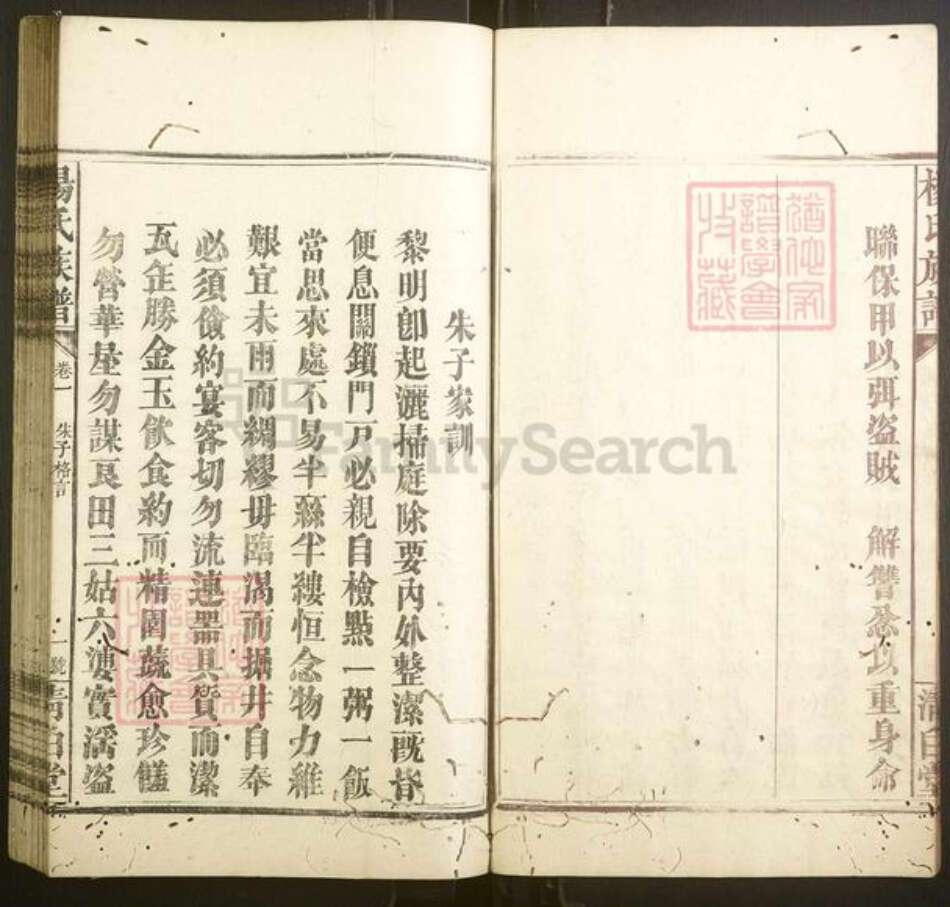 楊氏族譜
清白堂
聯保甲以弭盜賊　解讐忿以重身命
猶他家譜學會收藏
朱子家訓
黎明卽起灑掃庭除要內外整潔旣昏
便息關鎖門戶必親自檢點一粥一飯
當思來處不易半絲半縷恒念物力維
艱宜未雨而綢繆毋臨渴而掘井自奉
必須儉約宴客切勿流連器具質而潔
瓦缶勝金玉飲食約而精園蔬愈珍饈
勿營華屋勿謀良田三姑六婆實滛盜
猶他家譜學會收藏
楊氏族譜
卷一
朱子格言
一號
清白堂
FamilySearch